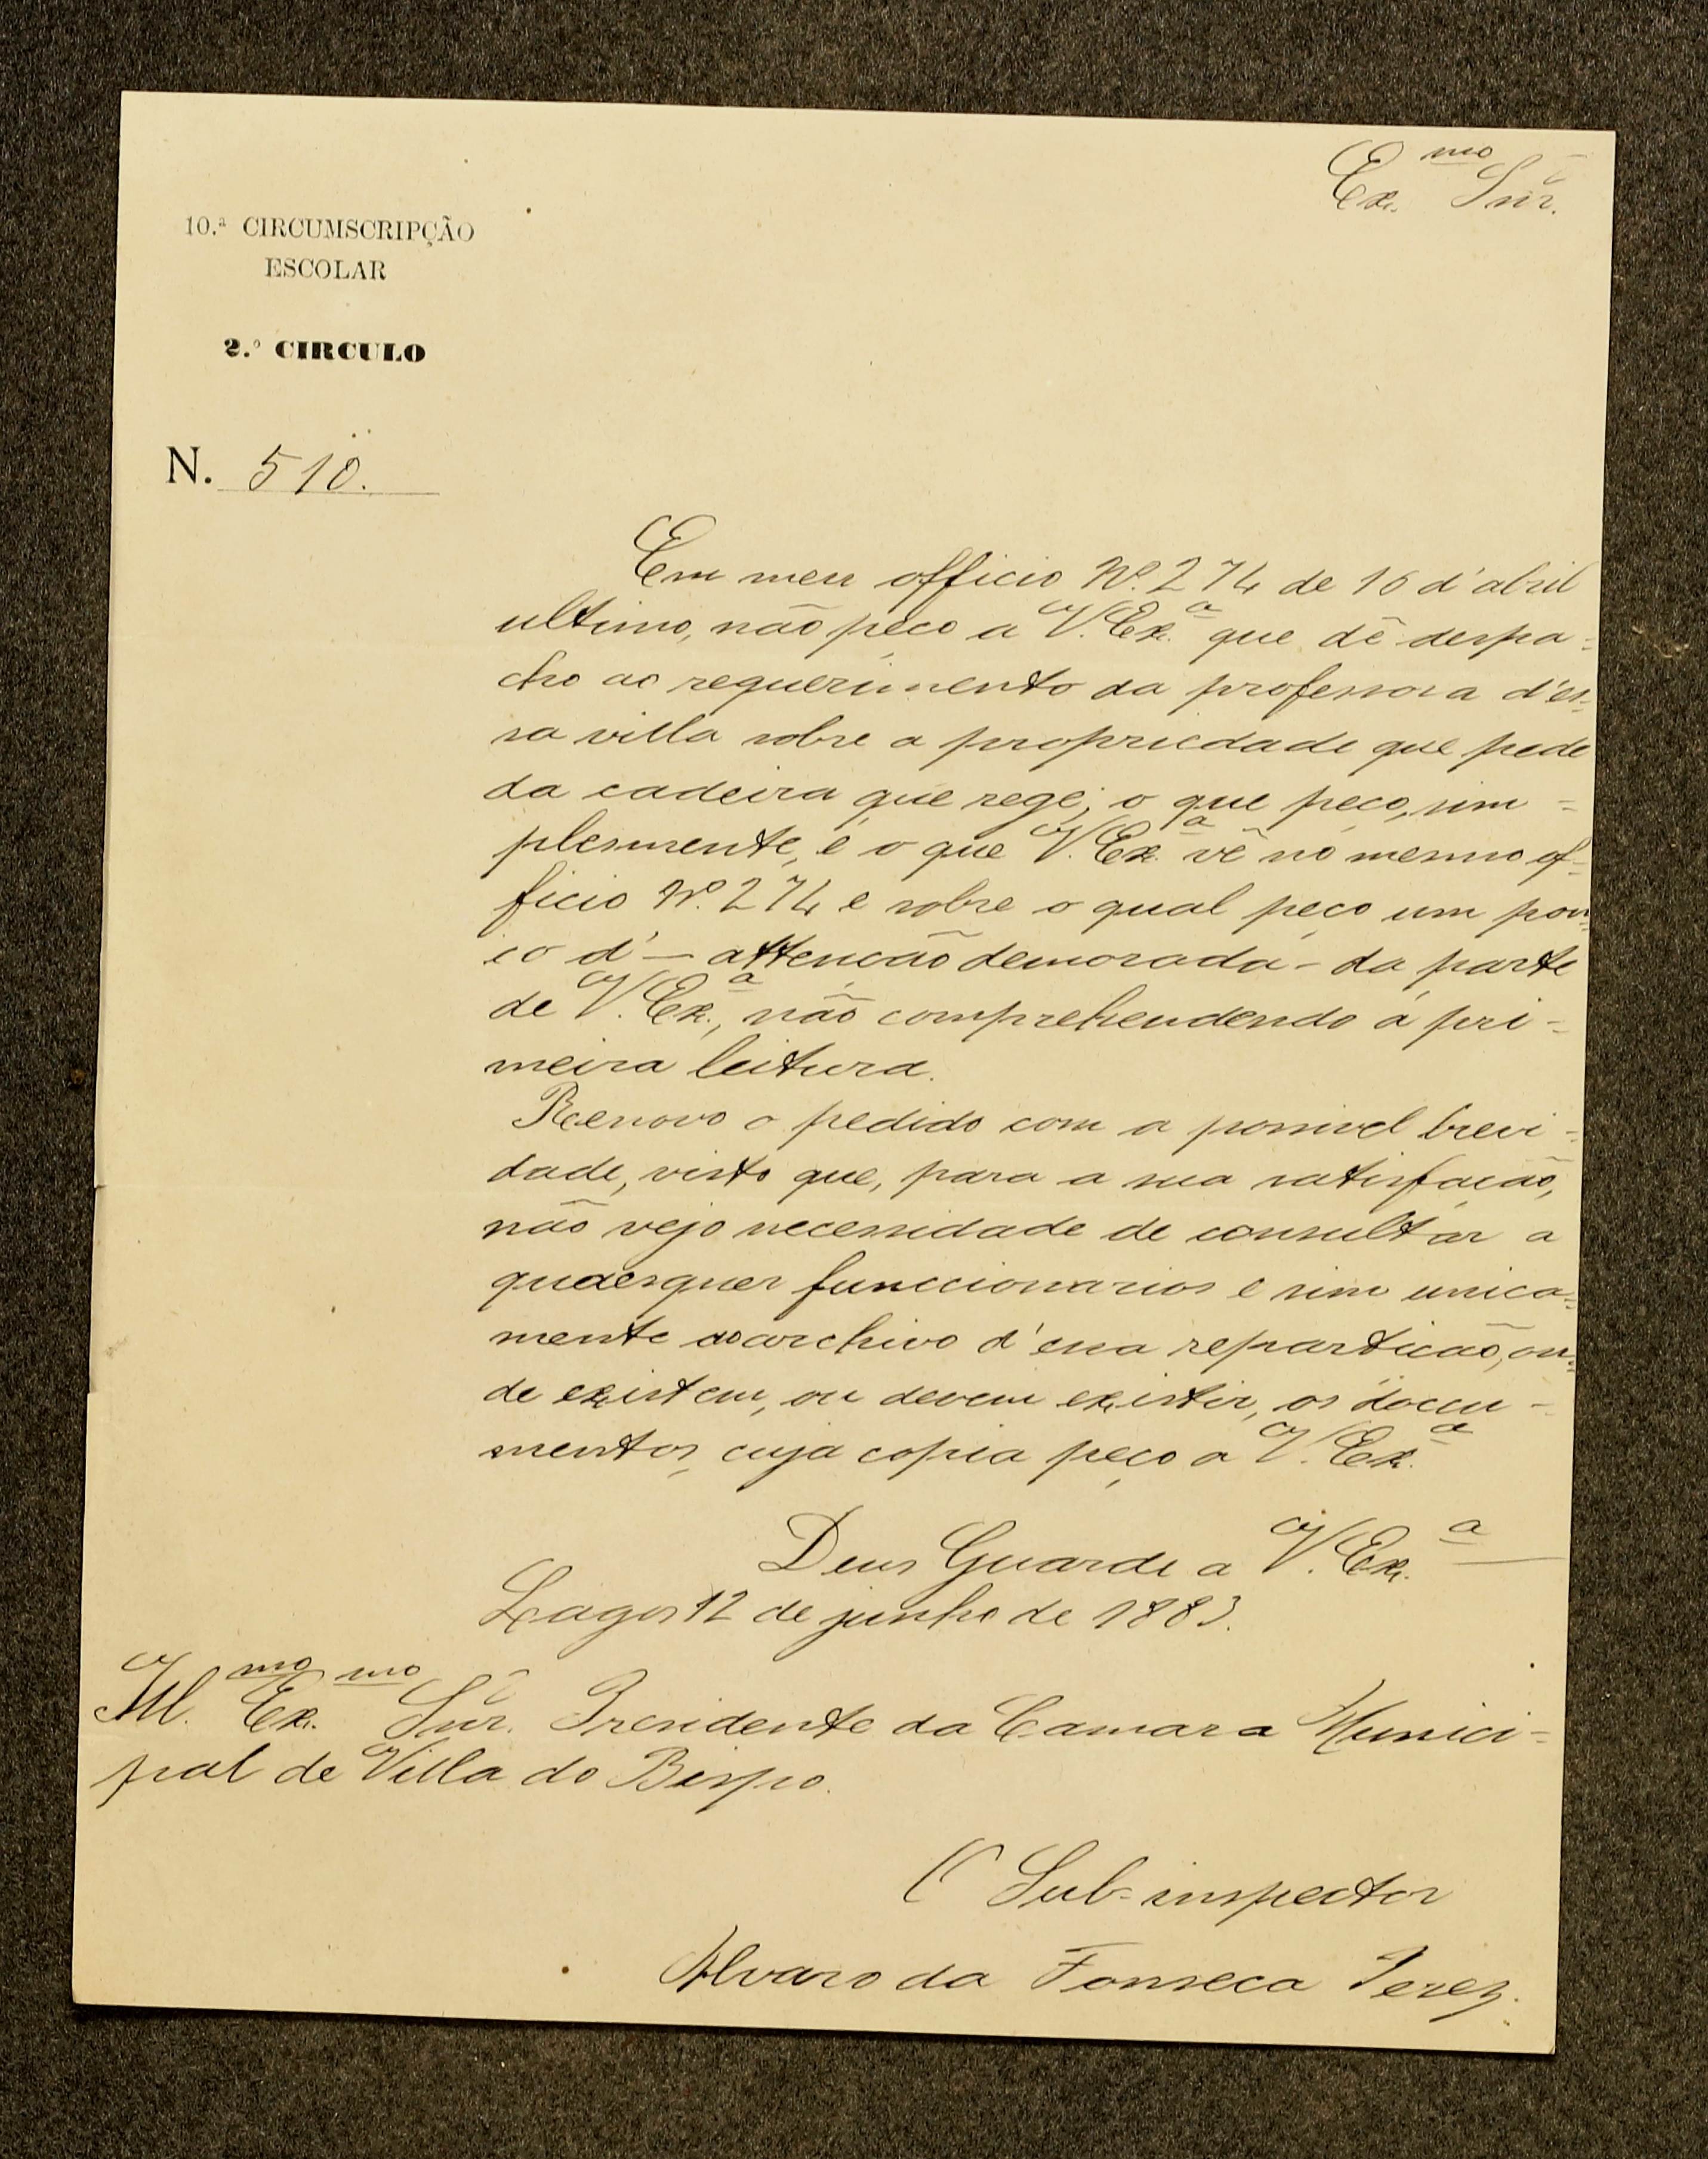 Ex.mo Snr.
10.ª CIRCUMSCRIPÇÃO
ESCOLAR
2.º CIRCULO
N. 510.
Em meu officio Nº. 274 de 16 d'abril
ultimo, não peço a V. Ex.ª que dê despa=
cho ao requerimento da professora d'es=
sa villa sobre a propriedade que pede
da cadeira que rege; o que peço, sim=
plesmente, é o que V. Ex.ª vê no mesmo of=
ficio Nº. 274 e sobre o qual peço um pou=
co d'— attenção demorada — da parte
de V. Ex.ª, não comprehendendo á pri=
meira leitura.
Renovo o pedido com a possivel brevi=
dade, visto que, para a sua satisfação,
não vejo necessidade de consultar a
quaesquer funccionarios e sim unica=
mente ao archivo d'essa repartição, on=
de existem, ou devem existir, os docu=
mentos, cuja copia peço a V. Ex.ª
Deus Guarde a V. Ex.ª
Lagos 12 de junho de 1883.
Ill.mo Ex.mo Snr. Presidente da Camara Munici=
pal de Villa do Bispo.
O Sub-inspector
Alvaro da Fonseca Jerez.